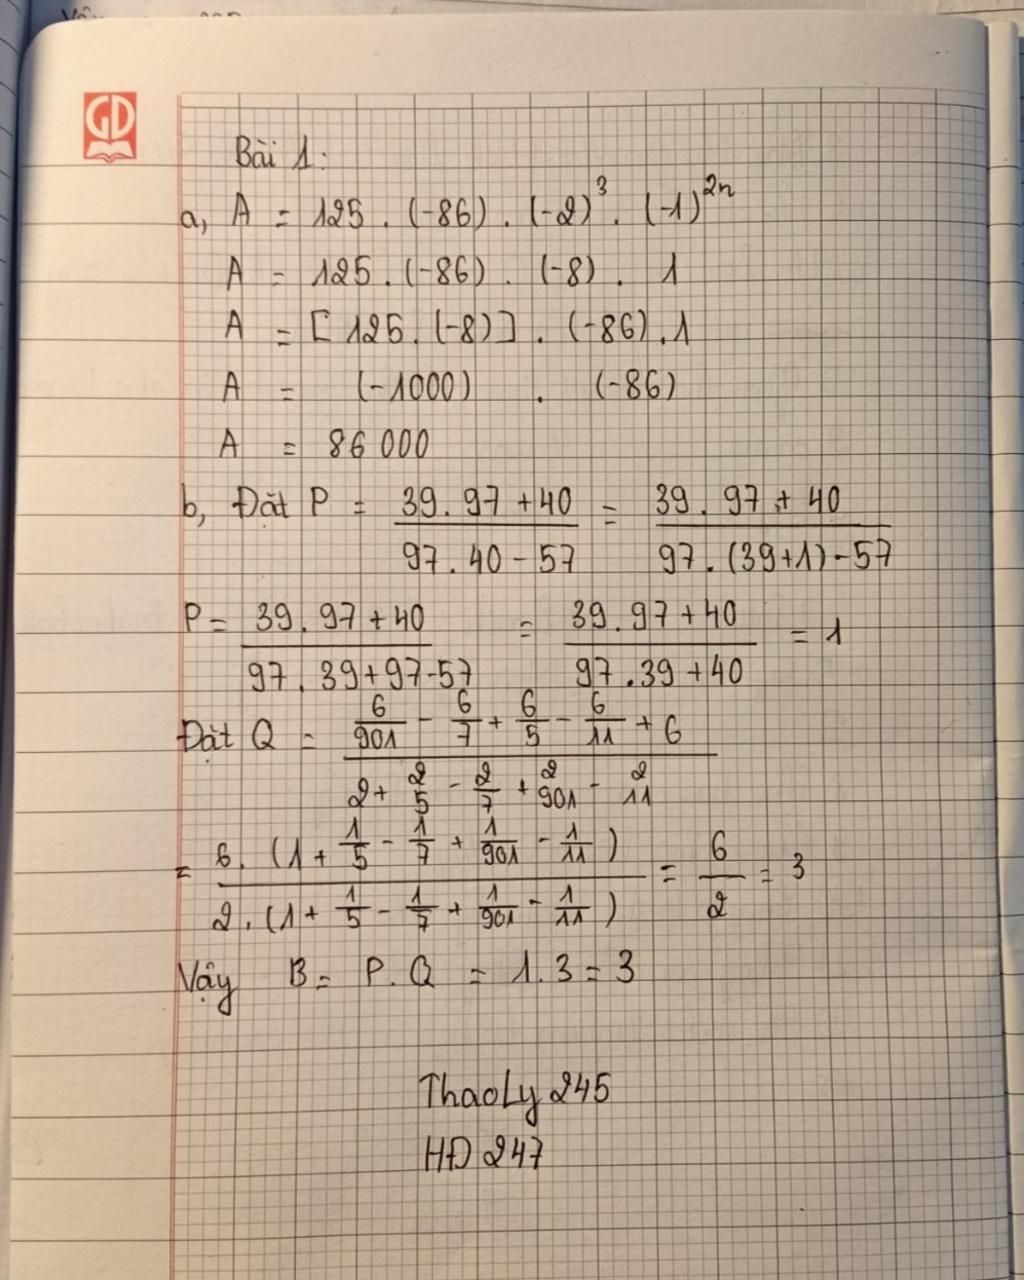 GD
Bài 1:
a, A = 125 . (-86) . (-2)³ . (-1)²ⁿ
A = 125 . (-86) . (-8) . 1
A = [125 . (-8)] . (-86) . 1
A = (-1000) . (-86)
A = 86 000
b, Đặt P = 39 . 97 + 40 / 97 . 40 - 57 = 39 . 97 + 40 / 97 . (39+1) - 57
P = 39 . 97 + 40 / 97 . 39 + 97 - 57 = 39 . 97 + 40 / 97 . 39 + 40 = 1
Đặt Q = 6/901 - 6/7 + 6/5 - 6/11 + 6 / 2 + 2/5 - 2/7 + 2/901 - 2/11
= 6 . (1 + 1/5 - 1/7 + 1/901 - 1/11) / 2 . (1 + 1/5 - 1/7 + 1/901 - 1/11) = 6/2 = 3
Vậy B = P . Q = 1 . 3 = 3
ThaoLy 245
HĐ 247